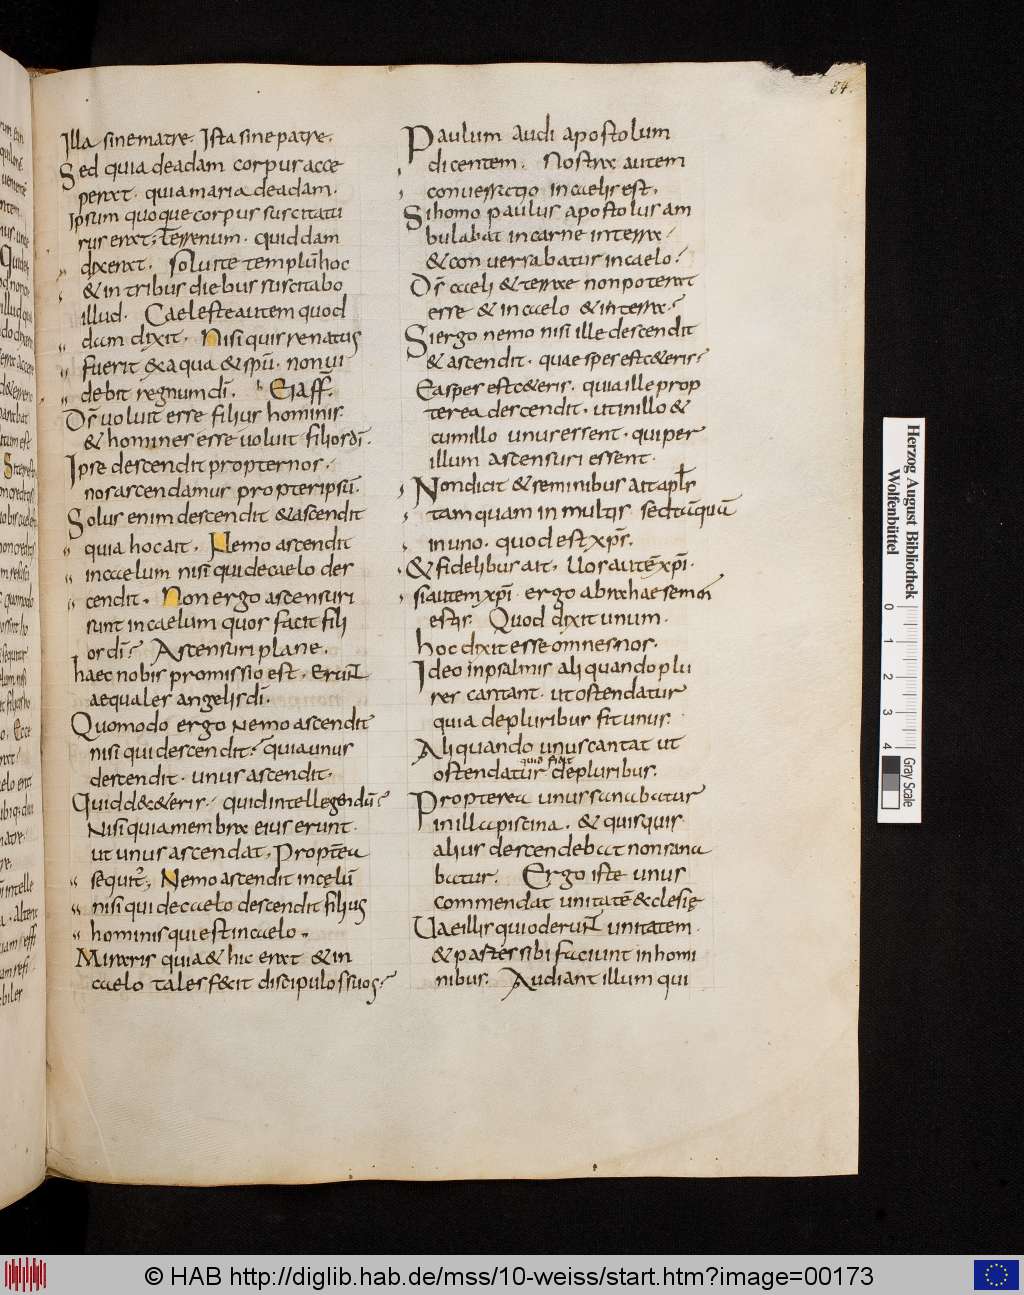 84.
Illa sine matre. Ista sine patre.
Sed quia de adam corpus acce
perat. quia maria de adam.
Ipsum quoque corpus suscitatu
rus erat. Terrenum. quiddam
dixerat. Soluite templū hoc
& in tribus diebus suscitabo
illud. Caeleste autem quod
dam dixit. Nisi quis renatus
fuerit & aqua & spū. non ui
debit regnum dī. Eia ff.
Ds uoluit esse filius hominis
& homines esse uoluit filios dī.
Ipse descendit propter nos.
nos ascendamus propter ipsū.
Solus enim descendit & ascendit
quia hoc ait. Nemo ascendit
in caelum nisi qui de caelo des
cendit. Non ergo ascensuri
sunt in caelum quos facit fili
os dī? Ascensuri plane.
haec nobis promissio est. Erunt
aequales angelis dī.
Quomodo ergo nemo ascendit
nisi qui descendit? quia unus
descendit. unus ascendit.
Quid de &eris? quid intellegendū?
Nisi quia membra eius erunt.
ut unus ascendat. Propterea
sequit. Nemo ascendit in celū
nisi qui de caelo descendit filius
hominis qui est in caelo.
Miraris quia & hic erat & in
caelo tales fecit discipulos suos?
Paulum audi apostolum
dicentem. Nostra autem
conuersatio in caelis est.
Si homo paulus apostolus am
bulabat in carne in terra
& conuersabatur in caelo?
Ds caeli & terrae non poterat
esse & in caelo & in terra?
Si ergo nemo nisi ille descendit
& ascendit. quae spes est c&eris?
Ea spes est c&eris. quia ille prop
terea descendit. ut in illo &
cum illo unus essent. qui per
illum ascensuri essent.
Non dicit & seminibus ait apls
tamquam in multis. sed tāquā
in uno. quod est xpī.
& fidelibus ait. Uos autē xpī.
si autem xpī. ergo abrahae semen
estis. Quod dixit unum.
hoc dixit esse omnes nos.
Ideo in psalmis aliquando plu
res cantant. ut ostendatur
quia de pluribus fit unus.
Aliquando unus cantat ut
quid fiat
ostendatur de pluribus.
Propterea unus sanabatur
in illa piscina. & quisquis
alius descendebat non sana
batur. Ergo iste unus
commendat unitatē ecclesię
Uae illis qui oderunt unitatem.
& partes sibi faciunt in homi
nibus. Audiant illum qui
Herzog August Bibliothek
Wolfenbüttel
0 1 2 3 4
Gray Scale
© HAB http://diglib.hab.de/mss/10-weiss/start.htm?image=00173